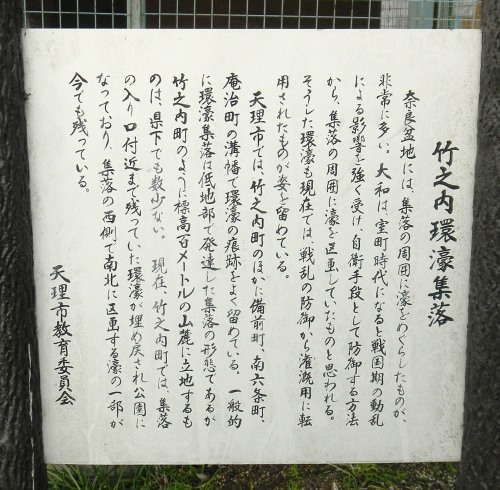 竹之内環濠集落
奈良盆地には、集落の周囲に濠をめぐらしたものが、
非常に多い。大和は、室町時代になると戦国期の動乱
による影響を強く受け、自衛手段として防御する方法
から、集落の周囲に濠を区画していたものと思われる。
そうした環濠も現在では、戦乱の防御から灌漑用に転
用されたものが姿を留めている。
天理市では、竹之内町のほかに備前町、南六条町、
庵治町の溝幡で環濠の痕跡をよく留めている。一般的
に環濠集落は低地部で発達した集落の形態であるが
竹之内町のように標高百メートルの山麓に立地するも
のは、県下でも数少ない。現在、竹之内町では、集落
の入り口付近まで残っていた環濠が埋め戻され公園に
なっており、集落の西側で南北に区画する濠の一部が
今でも残っている。
天理市教育委員会